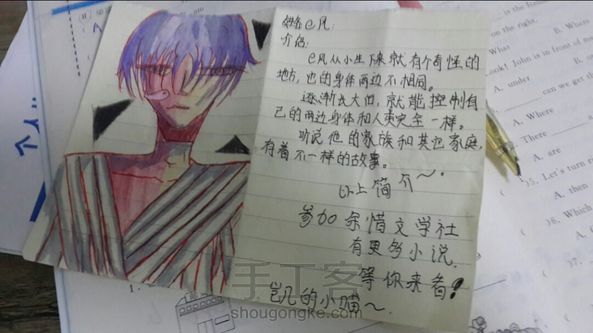 姓名 e凡
介绍:
e凡从小生下来就有个奇怪的
地方,他的身体两边不相同。
逐渐长大后,就能控制自
己的两边身体和人类完全一样。
听说他的家族和其它家庭,
有着不一样的故事。
以上简介～.
参加余惜文学社
有更多小说,
等你来看!
岂凡的小喵～
手工客
shougongke.com
What
A. Where
B. Where
Look! John is in front of me
can we get th
A. Who
A. Where
There
A. are
35. Let's turn ri
A. then
38. Which
A. O